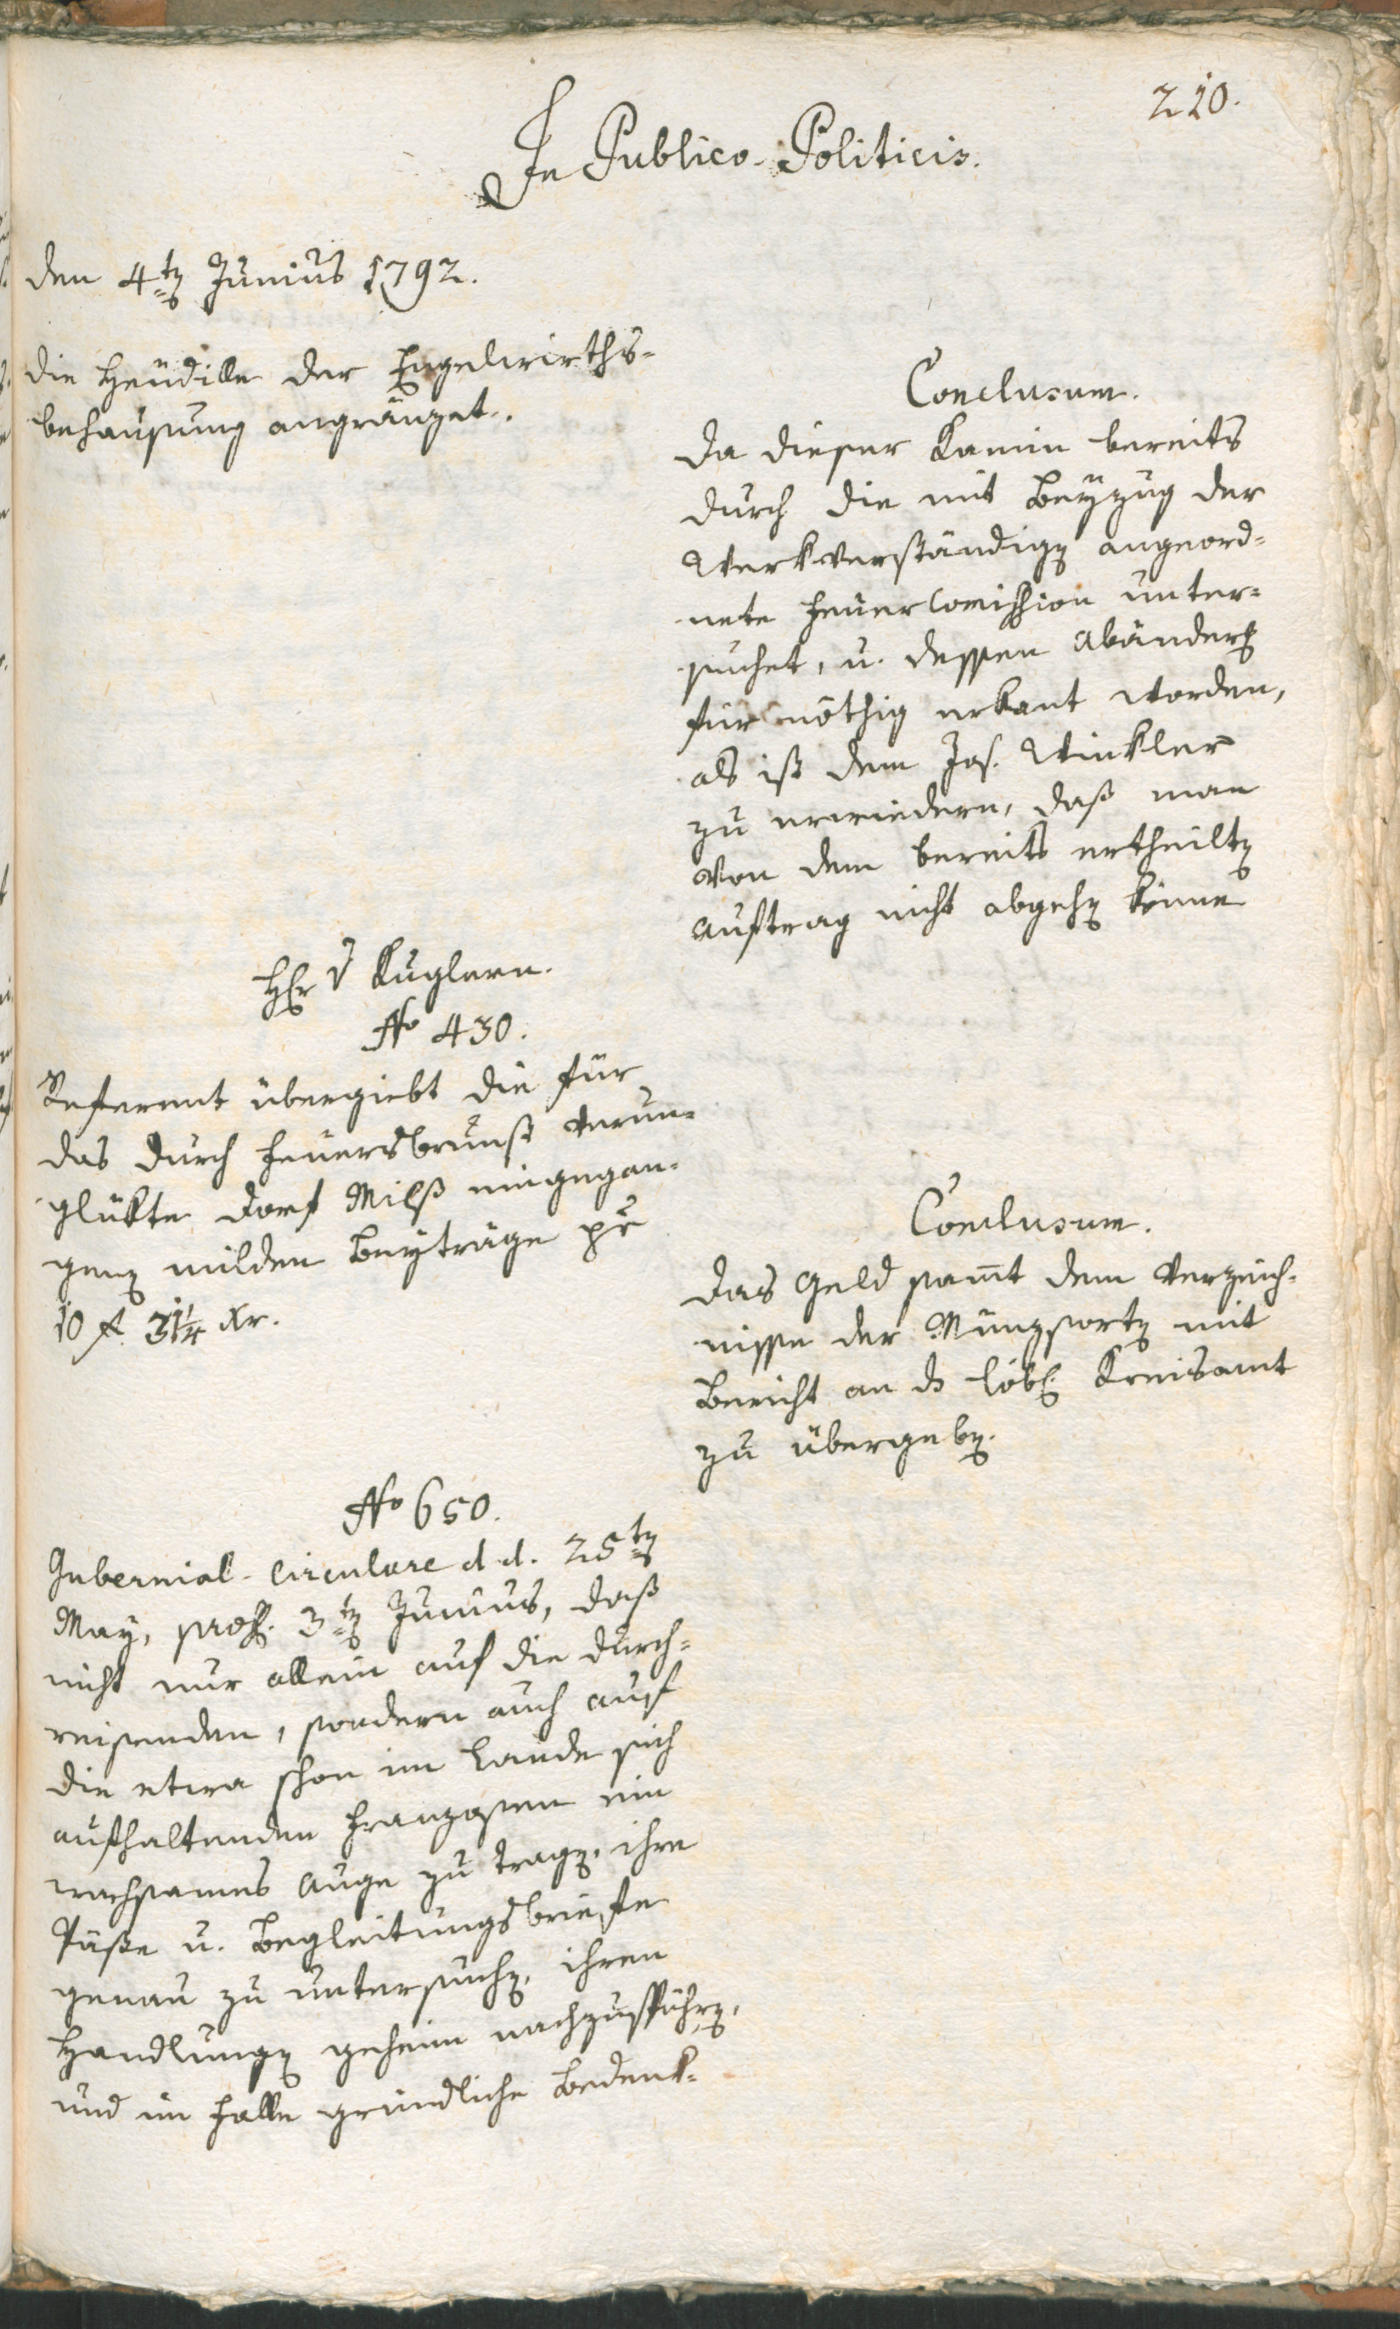 210.
In Publico-Politicis.
den 4ten Junius 1792.
die Heudille der Engelwirths-
behausung angränzet.
Conclusum.
Da dieser Kamin bereits
durch die mit Beyzug der
Werkverständigen angeord-
nete Feuercommission unter-
suchet, u. dessen Abänderung
für nöthig erkant worden,
als ist dem Jos. Winkler
zu erwiedern, daß man
von dem bereits ertheilten
Auftrag nicht abgehen könne
Hr v Kuglern.
No 430.
Referent übergiebt die für
das durch Feuersbrunst verun-
glükte Dorf Milß eingegan-
genen milden Beyträge pr
10 f 31¼ xr.
Conclusum.
Das Geld samt dem Verzeich-
nisse der Münzsorten mit
Bericht an das löbl. Kreisamt
zu übergeben.
No 650.
Gubernial-Circulare d. d. 25ten
May, præs. 3ten Junius, daß
nicht nur allein auf die durch-
reisenden, sondern auch auf
die etwa schon im Lande sich
aufhaltenden Franzosen ein
wachsames Auge zu tragen, ihre
Päße u. Begleitungsbriefe
genau zu untersuchen, ihren
Handlungen geheim nachzuspühren,
und im Falle gründliche Bedenk-